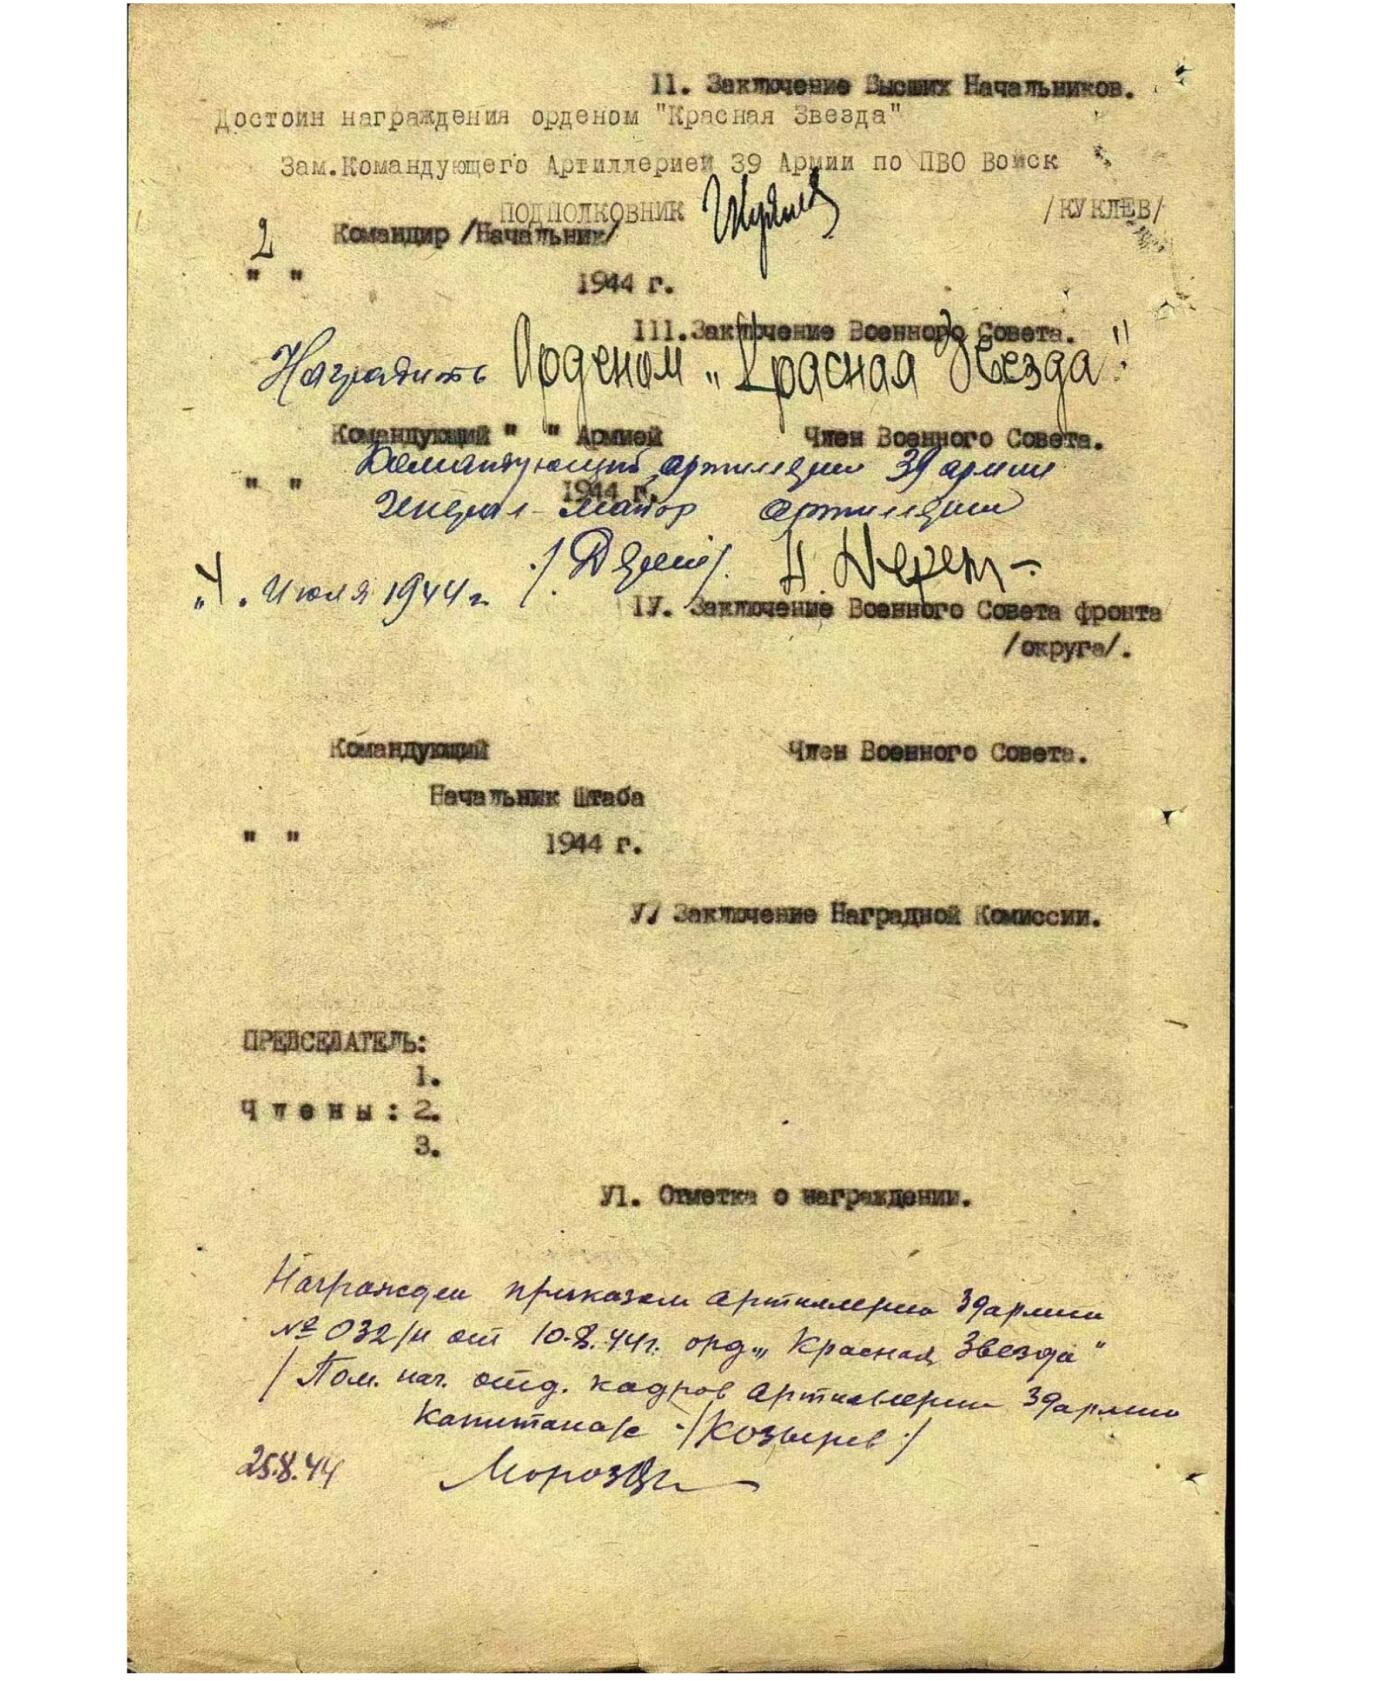 II. Заключение Высших Начальников.
Достоин награждения орденом "Красная Звезда"
Зам.Командующего Артиллерией 39 Армии по ПВО Войск
ПОДПОЛКОВНИК /КУКЛЕВ/
2 Командир /Начальник/
" " 1944 г.
III.Заключение Военного Совета.
Наградить Орденом „Красная Звезда".
Командующий " " Армией Член Военного Совета.
Командующий артиллерии 39 армии
" " 1944 г.
Генерал-майор артиллерии
„4". Июля 1944 г.
IУ. Заключение Военного Совета фронта
/округа/.
Командующий Член Военного Совета.
Начальник Штаба
" " 1944 г.
У/ Заключение Наградной Комиссии.
ПРЕДСЕДАТЕЛЬ:
1.
Члены: 2.
3.
У1. Отметка о награждении.
Награжден приказом артиллерии 39 армии
№ 032/н от 10.8.44г. орд. „Красная Звезда"
/Пом. нач. отд. кадров артиллерии 39 армии
капитан а/с /Козырев/
25.8.44